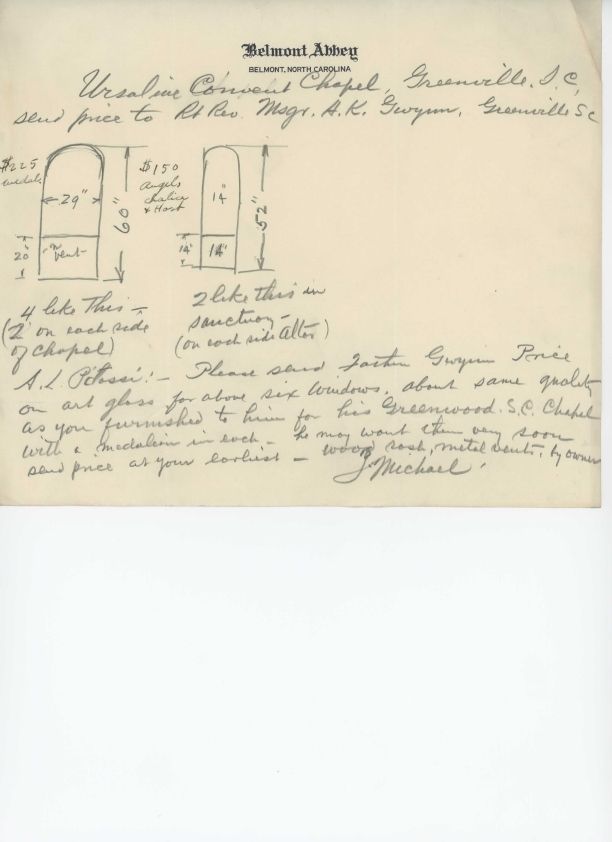 Belmont Abbey
BELMONT, NORTH CAROLINA
Ursaline Convent Chapel, Greenville, S.C,
send price to Rt Rev. Msgr. A.K. Gwynn, Greenville SC
$225
medal.
29"
60"
20"
vent
$150
Angels
chalice
& Host
14"
52"
14"
14"
4 like This -
(2 on each side
of chapel)
2 like this in
sanctuary -
(on each side Alter)
A.L. Pitassi:- Please send Father Gwynn Price
on art glass for above six windows, about same quality
as you furnished to him for his Greenwood. S.C. Chapel
with a medalion in each - he may want them very soon
send price at your earliest - wood sash, metal vents, by owner
J. Michael